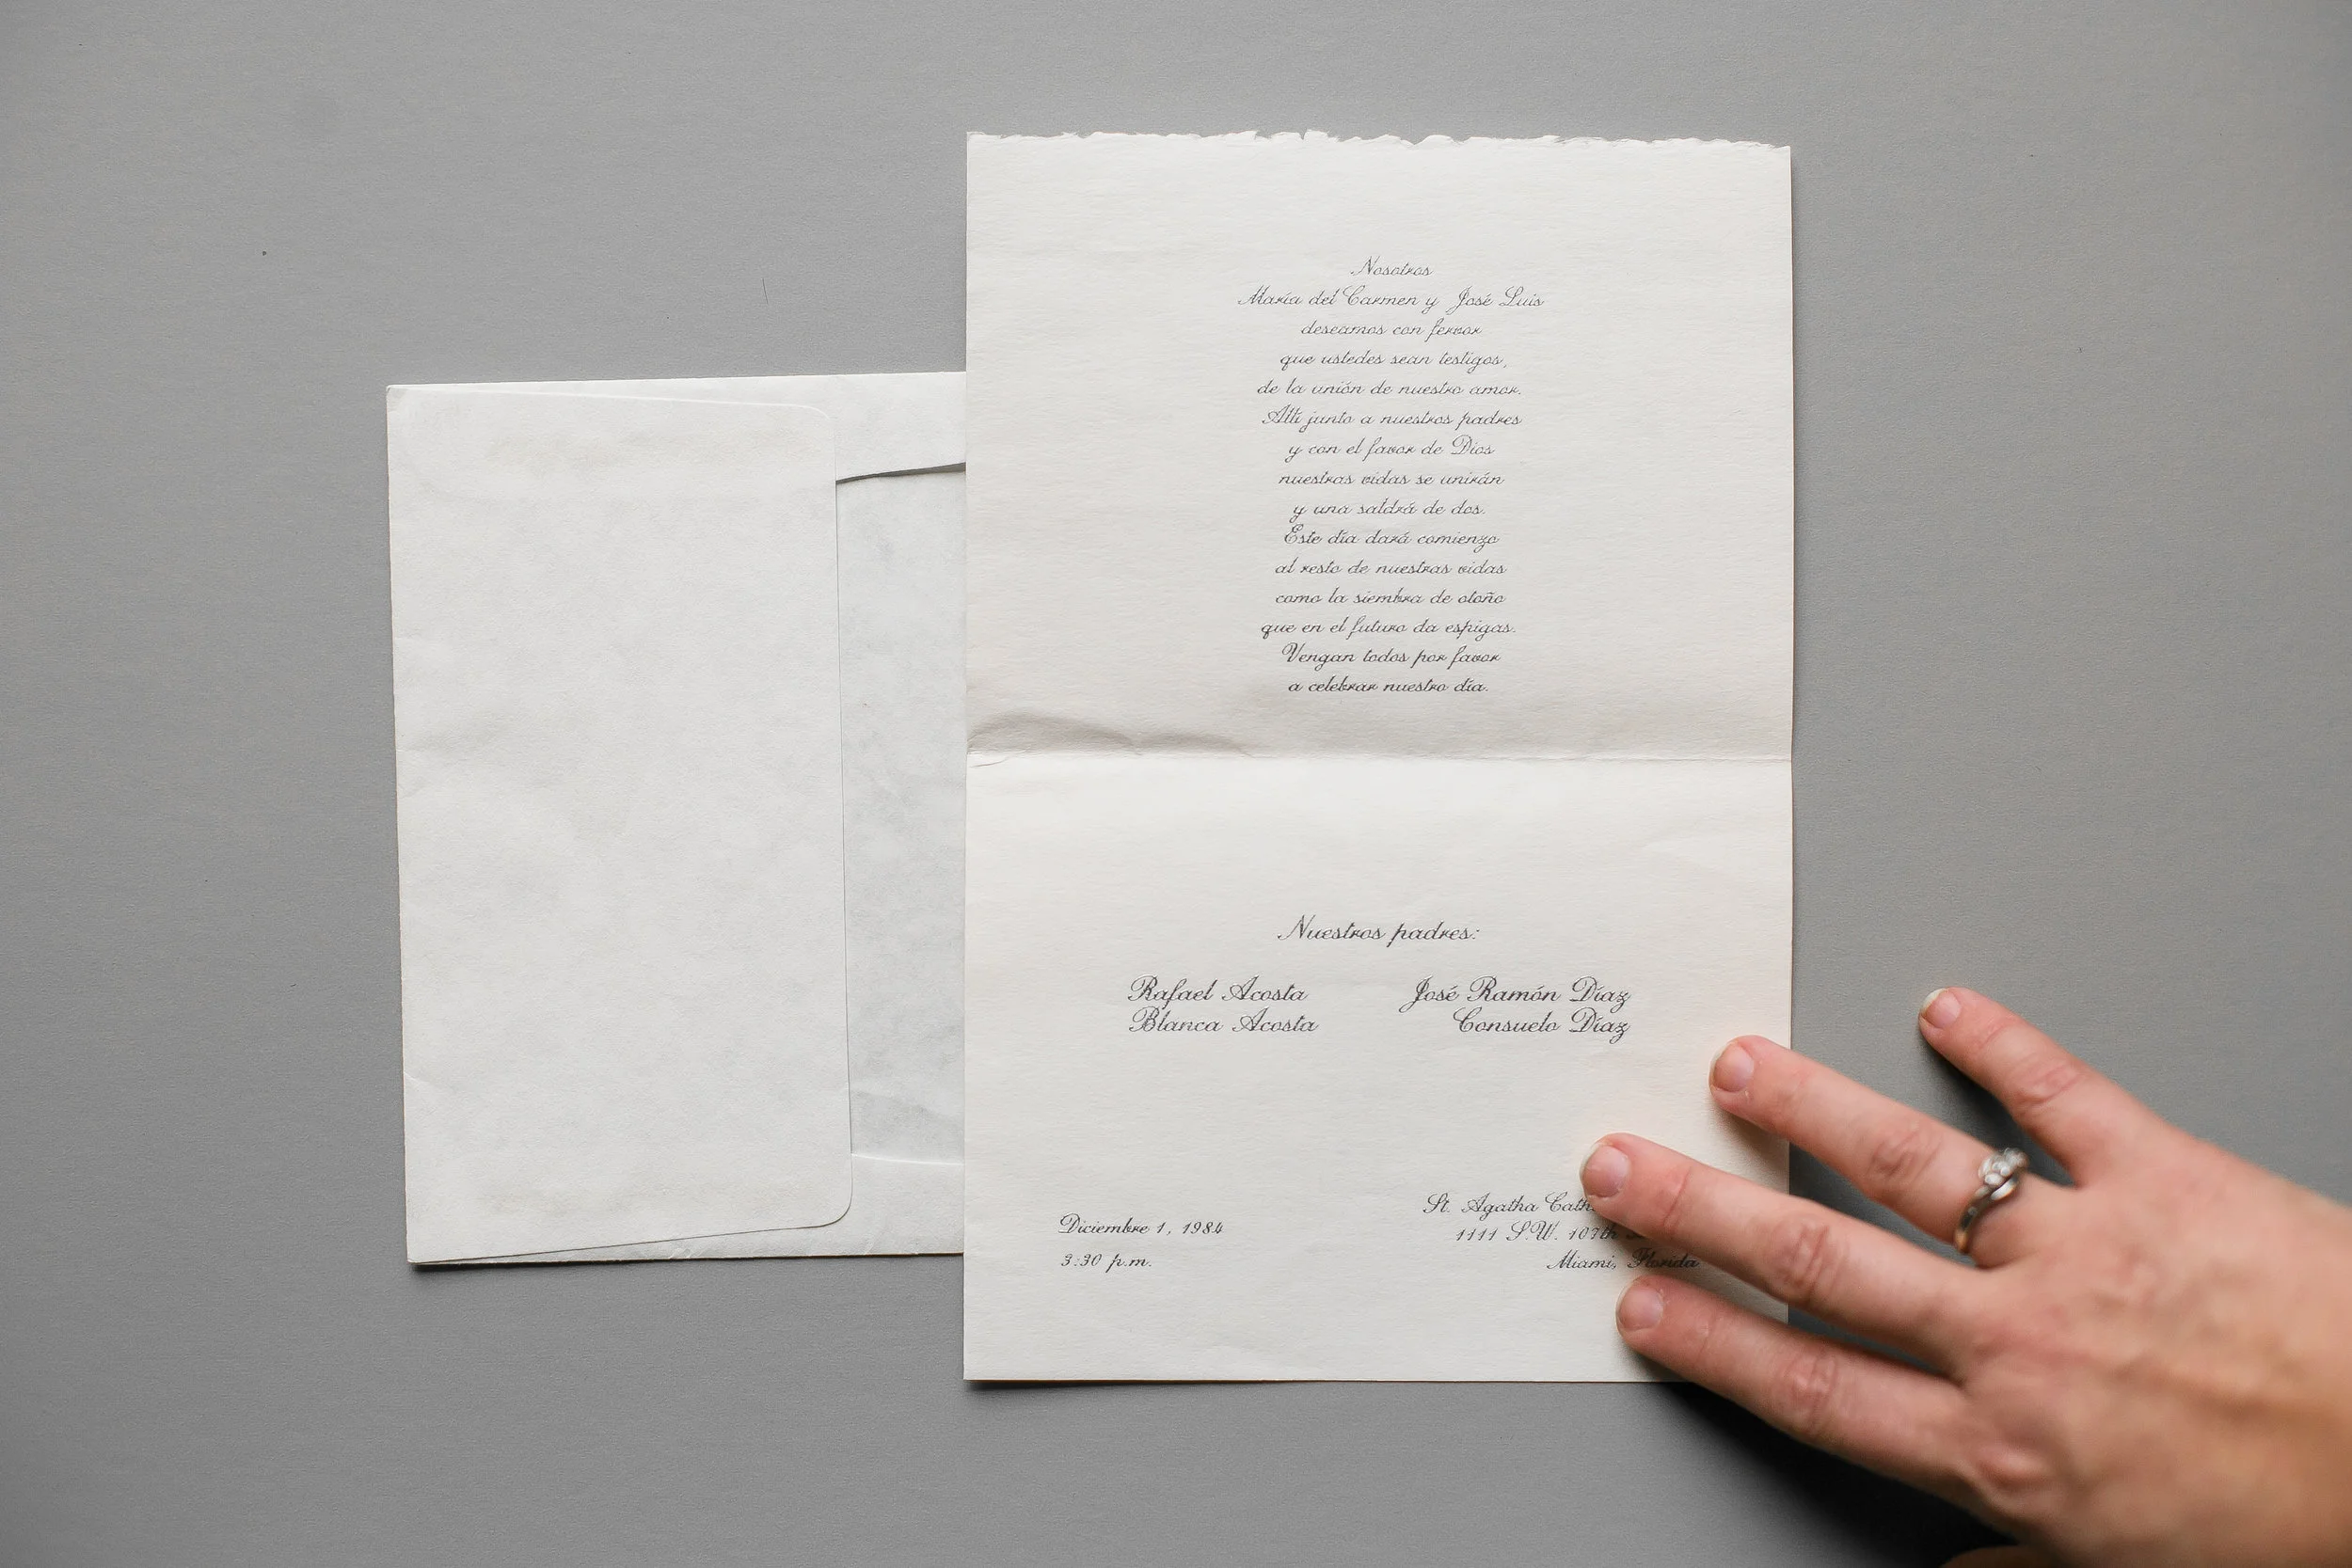 Nosotros
María del Carmen y José Luis
deseamos con fervor
que ustedes sean testigos,
de la unión de nuestro amor.
Allí junto a nuestros padres
y con el favor de Dios
nuestras vidas se unirán
y una saldrá de dos.
Este día dará comienzo
al resto de nuestras vidas
como la siembra de otoño
que en el futuro da espigas.
Vengan todos por favor
a celebrar nuestro día.
Nuestros padres:
Rafael Acosta
Blanca Acosta
José Ramón Díaz
Consuelo Díaz
Diciembre 1, 1984
3:30 p.m.
St. Agatha
1111 S.W. 107th
Miami, Florida